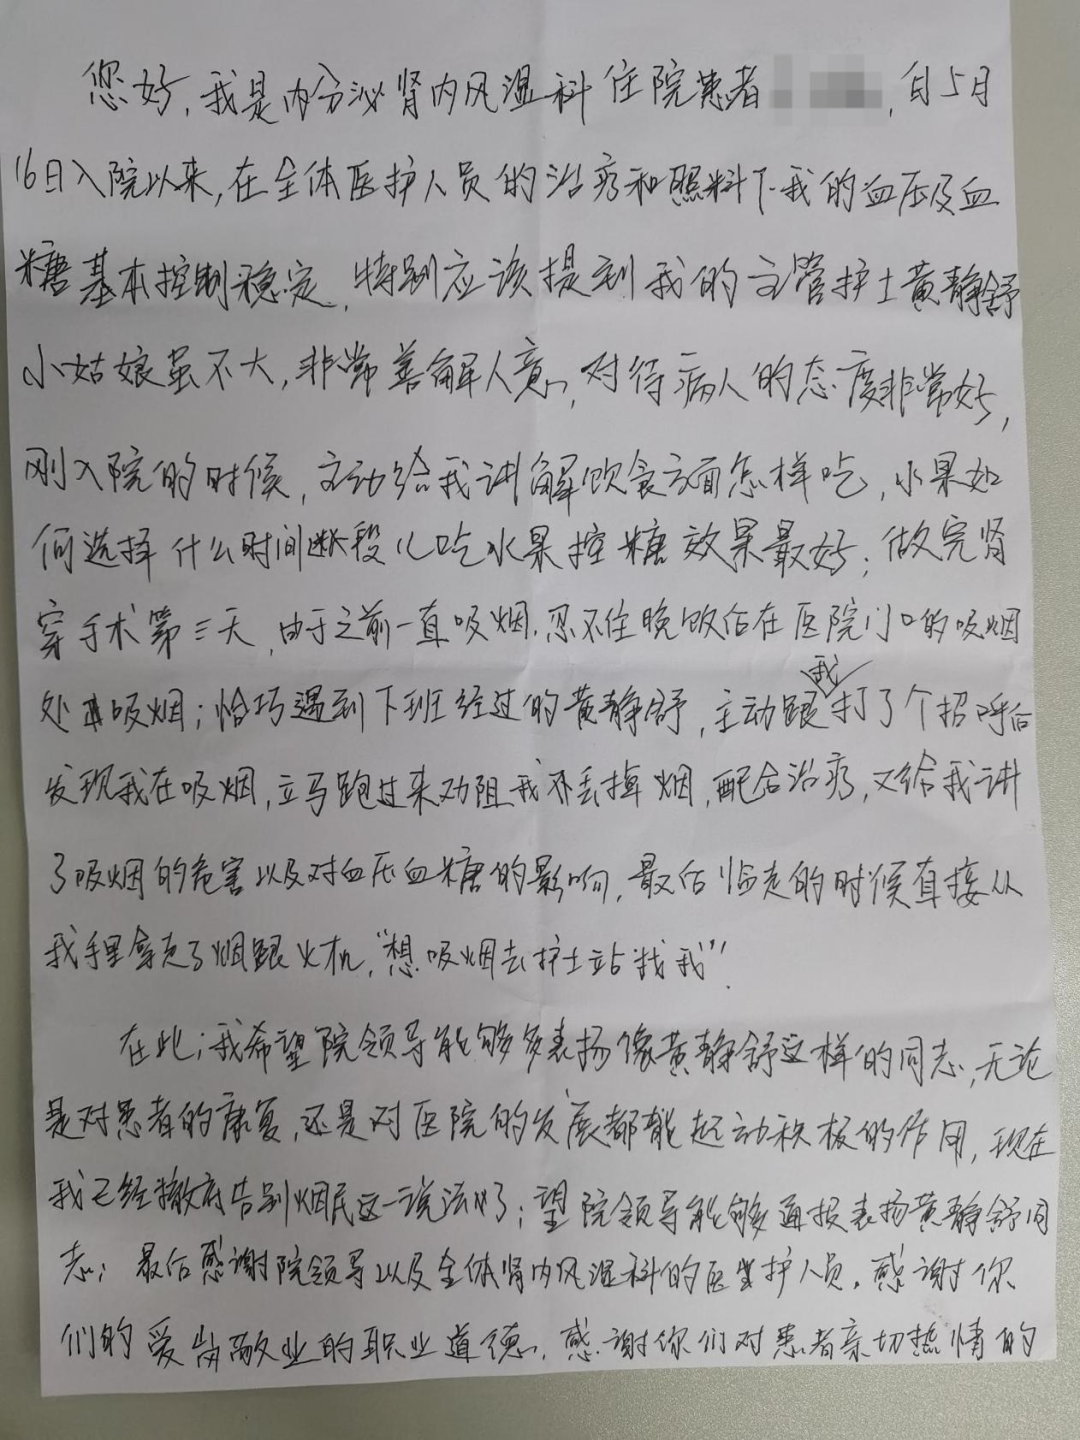 您好，我是内分泌肾内风湿科住院患者，自5月
16日入院以来，在全体医护人员的治疗和照料下，我的血压及血
糖基本控制稳定，特别应该提到我的主管护士黄静舒
小姑娘虽不大，非常善解人意，对待病人的态度非常好，
刚入院的时候，主动给我讲解饮食方面怎样吃，水果如
何选择什么时间段儿吃水果控糖效果最好；做完肾
穿手术第三天，由于之前一直吸烟，忍不住晚饭后在医院门口的吸烟
处吸烟；恰巧遇到下班经过的黄静舒，主动跟我打了个招呼后
发现我在吸烟，立马跑过来劝阻我丢掉烟，配合治疗，又给我讲
了吸烟的危害以及对血压血糖的影响，最后临走的时候直接从
我手里拿走了烟跟火机，“想吸烟去护士站找我”！
在此；我希望院领导能够多表扬像黄静舒这样的同志，无论
是对患者的康复，还是对医院的发展都能起动积极的作用，现在
我已经撤底告别烟民这一说法了；望院领导能够通报表扬黄静舒同
志；最后感谢院领导以及全体肾内风湿科的医生护人员，感谢你
们的爱岗敬业的职业道德，感谢你们对患者亲切热情的